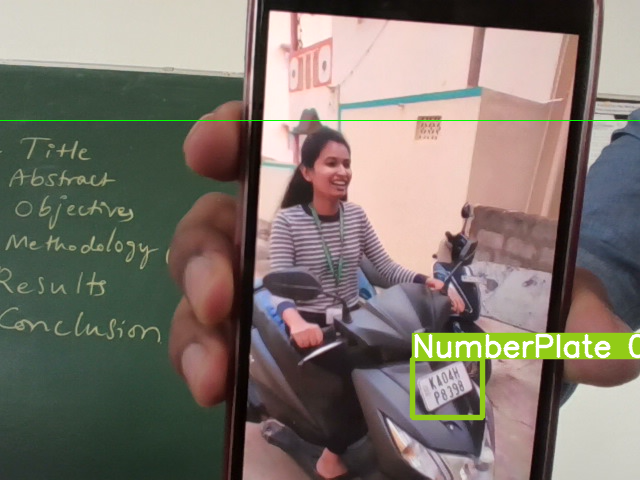 Title
Abstract
Objectives
Methodology
Results
Conclusion
NumberPlate
KA04H
P8398